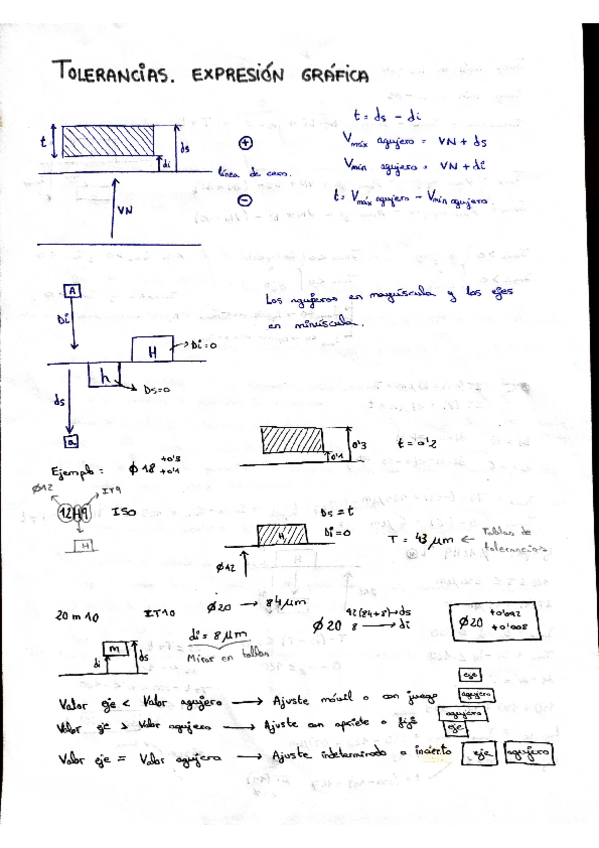 TOLERANCIAS. EXPRESIÓN GRÁFICA
t = ds - di
t
ds
di
⊕
Vmáx agujero = VN + ds
línea de cero.
Vmín agujero = VN + di
⊖
t = Vmáx agujero - Vmín agujero.
VN
A
Los agujeros en mayúscula y los ejes
en minúscula.
Di
H
Di=0
h
Ds=0
ds
a
0'3
0'1
t = 0'2
Ejemplo: φ 18 +0'3 +0'1
φ12
IT9
12H9 ISO
H
Ds = t
Di=0
H
T = 43 μm ← Tablas de
tolerancias
φ12
20 m 10 IT10 φ20 → 84 μm
φ 20 92(84+8)→ds
8 → di
φ20 +0'092
+0'008
di = 8 μm
Mirar en tablas
m
di
ds
eje
Valor eje < Valor agujero → Ajuste móvil o con juego agujero
agujero
Valor eje > Valor agujero → Ajuste con apriete o fijo eje
Valor eje = Valor agujero → Ajuste indeterminado o incierto eje agujero